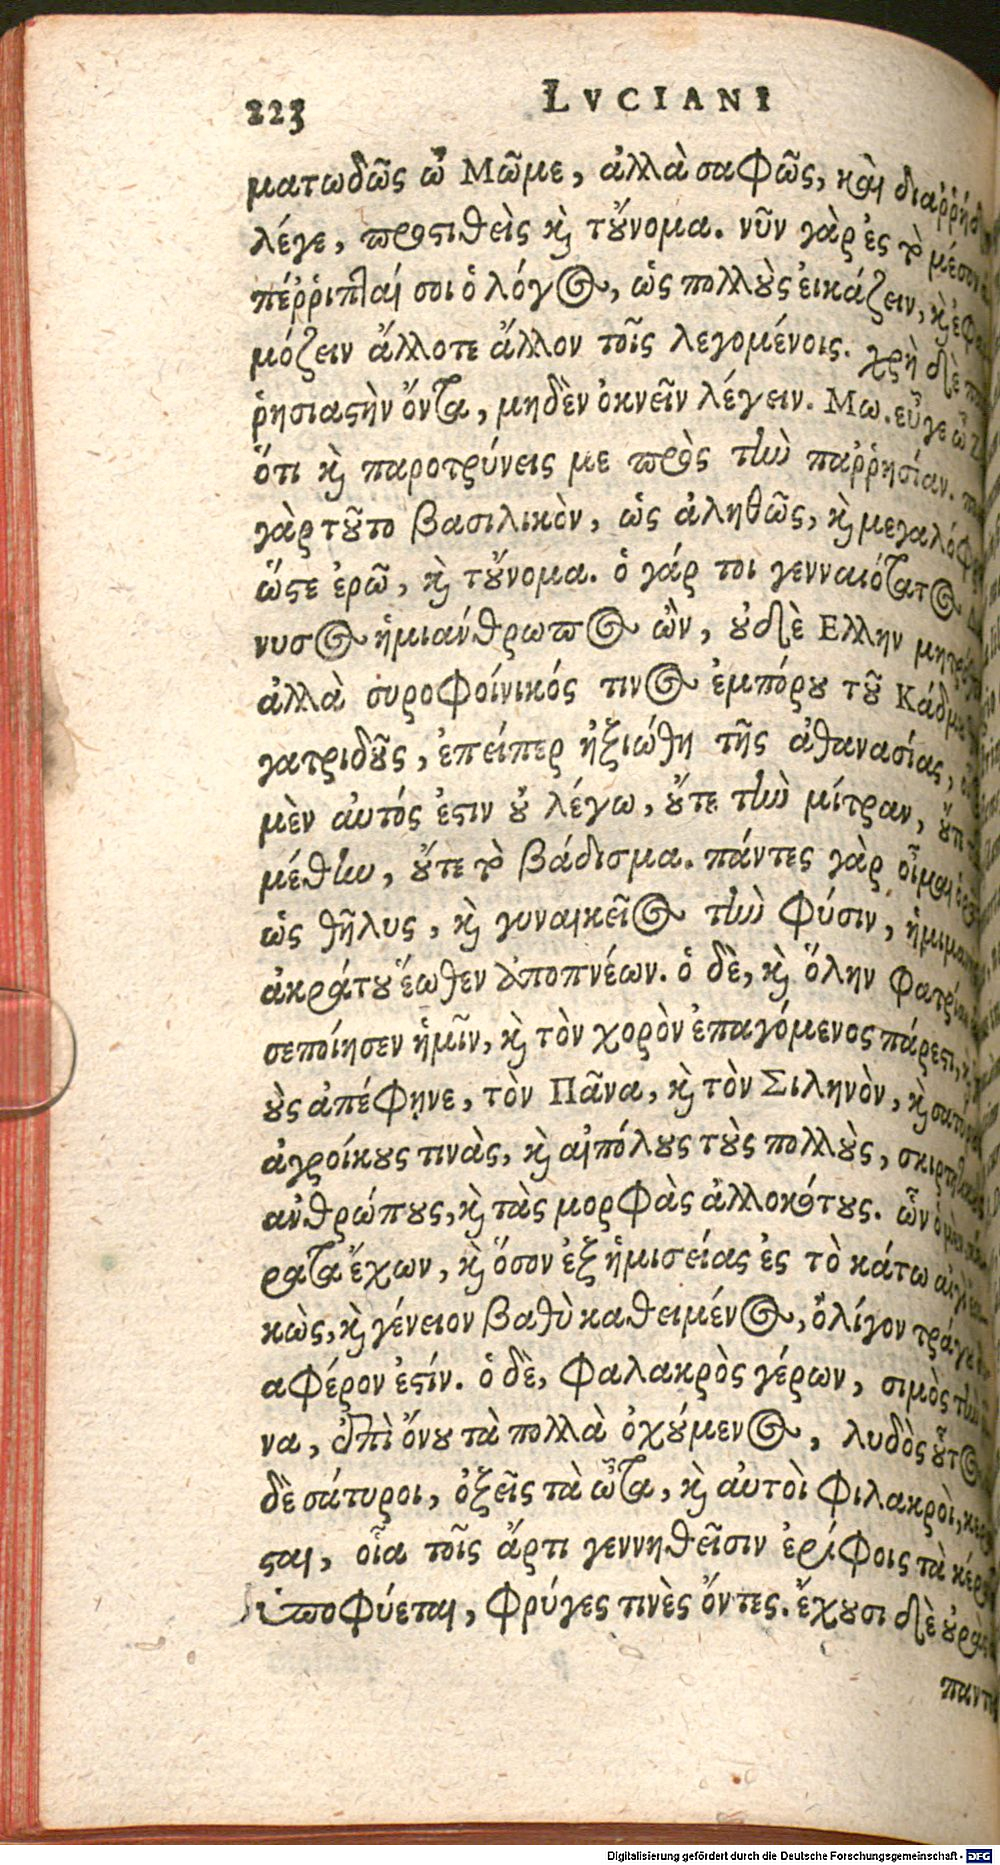 223 LVCIANI
ματωδῶς ὦ Μῶμε, ἀλλὰ σαφῶς, καὶ
λέγε, προστιθεὶς καὶ τὔνομα. νῦν γὰρ ἐς τὸ
πέῤῥιπται σοι ὁ λόγος, ὡς πολλοὺς εἰκάζειν, καὶ
μόζειν ἄλλοτε ἄλλον τοῖς λεγομένοις. χρὴ δὲ
ῥησιαστὴν ὄντα, μηδὲν ὀκνεῖν λέγειν. Μω. εὖγε ὦ
ὅτι καὶ παροτρύνεις με πρὸς τὴν παῤῥησίαν.
γὰρ τοῦτο βασιλικὸν, ὡς ἀληθῶς, καὶ
ὥστε ἐρῶ, καὶ τὔνομα. ὁ γάρ τοι γενναιότατος
νυσος ἡμιάνθρωπος ὢν, οὐδὲ Ελλην
ἀλλὰ συροφοίνικός τινος ἐμπόρου τοῦ
γατριδοῦς, ἐπείπερ ἠξιώθη τῆς ἀθανασίας,
μὲν αὐτός ἐστιν οὐ λέγω, οὔτε τὴν μίτραν,
μέθην, οὔτε τὸ βάδισμα. πάντες γὰρ οἶμαι
ὡς θῆλυς, καὶ γυναικεῖος τὴν φύσιν,
ἀκράτου ἕωθεν ἀποπνέων. ὁ δὲ, καὶ ὅλην
σεποίησεν ἡμῖν, καὶ τὸν χορὸν ἐπαγόμενος πάρεστι,
οὺς ἀπέφηνε, τὸν Πᾶνα, καὶ τὸν Σιληνὸν, καὶ
ἀγροίκους τινὰς, καὶ αἰπόλους τοὺς πολλοὺς,
ἀνθρώπους, καὶ τὰς μορφὰς ἀλλοκότους. ὧν ὁ μὲν
ρατα ἔχων, καὶ ὅσον ἐξ ἡμισείας ἐς τὸ κάτω
κὼς, καὶ γένειον βαθὺ καθειμένος, ὀλίγον
αφέρον ἐστίν. ὁ δὲ, φαλακρὸς γέρων, σιμὸς
να, ἐπὶ ὄνου τὰ πολλὰ ὀχούμενος, λυδὸς
δὲ σάτυροι, ὀξεῖς τὰ ὦτα, καὶ αὐτοὶ φιλακροὶ,
σται, οἷα τοῖς ἄρτι γεννηθεῖσιν ἐρίφοις τὰ
ὑποφύεται, φρύγες τινὲς ὄντες. ἔχουσι δὲ